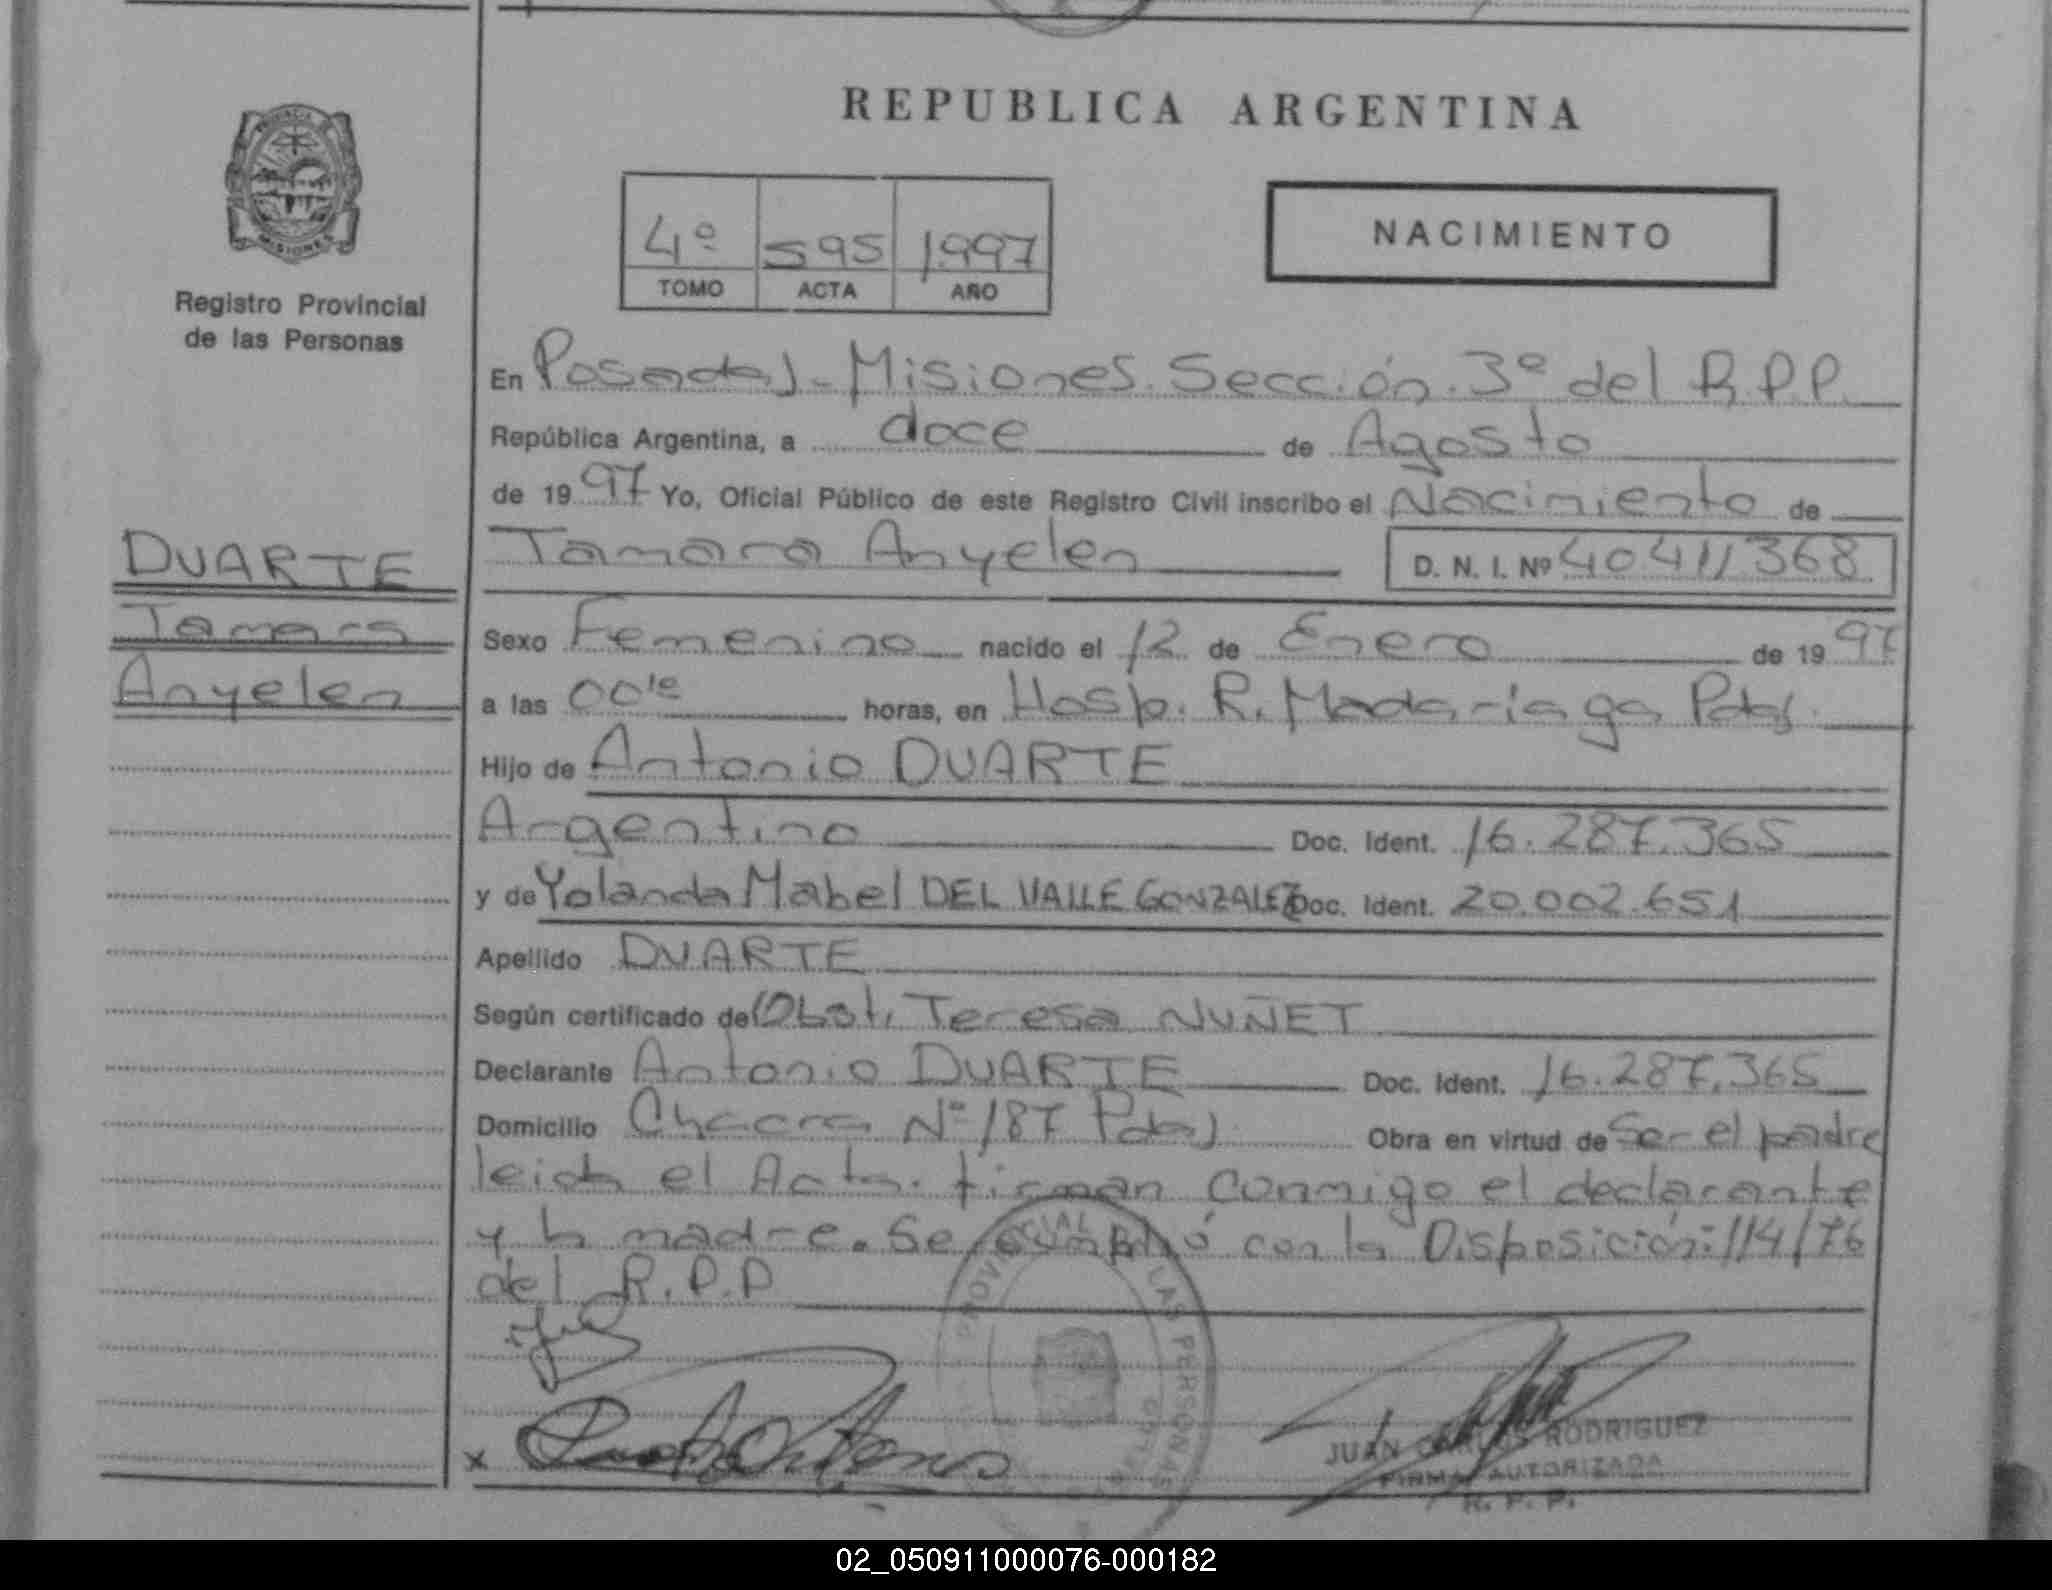 REPUBLICA ARGENTINA
PROVINCIA DE
MISIONES
Registro Provincial
de las Personas
4º 595 1.997
TOMO ACTA AÑO
NACIMIENTO
En Posadas - Misiones. Sección. 3º del R.P.P.
República Argentina, a doce de Agosto
de 1997 Yo, Oficial Público de este Registro Civil inscribo el Nacimiento de
Tamara Anyelen D. N. I. Nº 40411368
DUARTE
Tamara
Anyelen
Sexo Femenino nacido el 12 de Enero de 1997
a las 00 horas, en Hosp. R. Madariaga Pdas.
Hijo de Antonio DUARTE
Argentino Doc. Ident. 16.287.365
y de Yolanda Mabel DEL VALLE GONZALEZ Doc. Ident. 20.002.651
Apellido DUARTE
Según certificado de Obst. Teresa NUÑET
Declarante Antonio DUARTE Doc. Ident. 16.287.365
Domicilio Chacra Nº 187 Pdas. Obra en virtud de Ser el padre
leida el Acta. firman conmigo el declarante
y la madre. Se cumplió con la Disposición: 114/76
del R.P.P
PROVINCIAL LAS PERSONAS
x
JUAN CARLOS RODRIGUEZ
FIRMA AUTORIZADA
R. P. P.
02_050911000076-000182